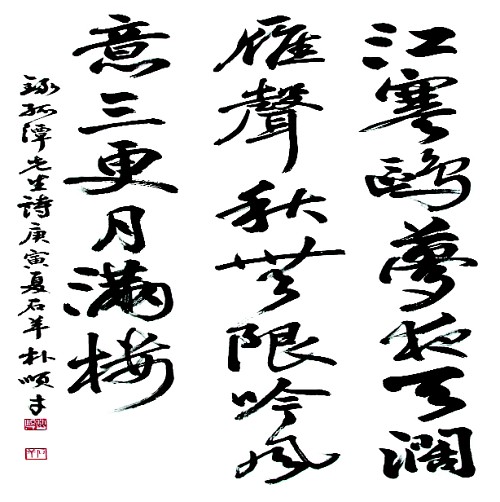 江寒鷗夢夜天濶
雁聲秋無限吟風
意三更月滿樓
錄孤潭先生詩庚寅夏石羊朴順才